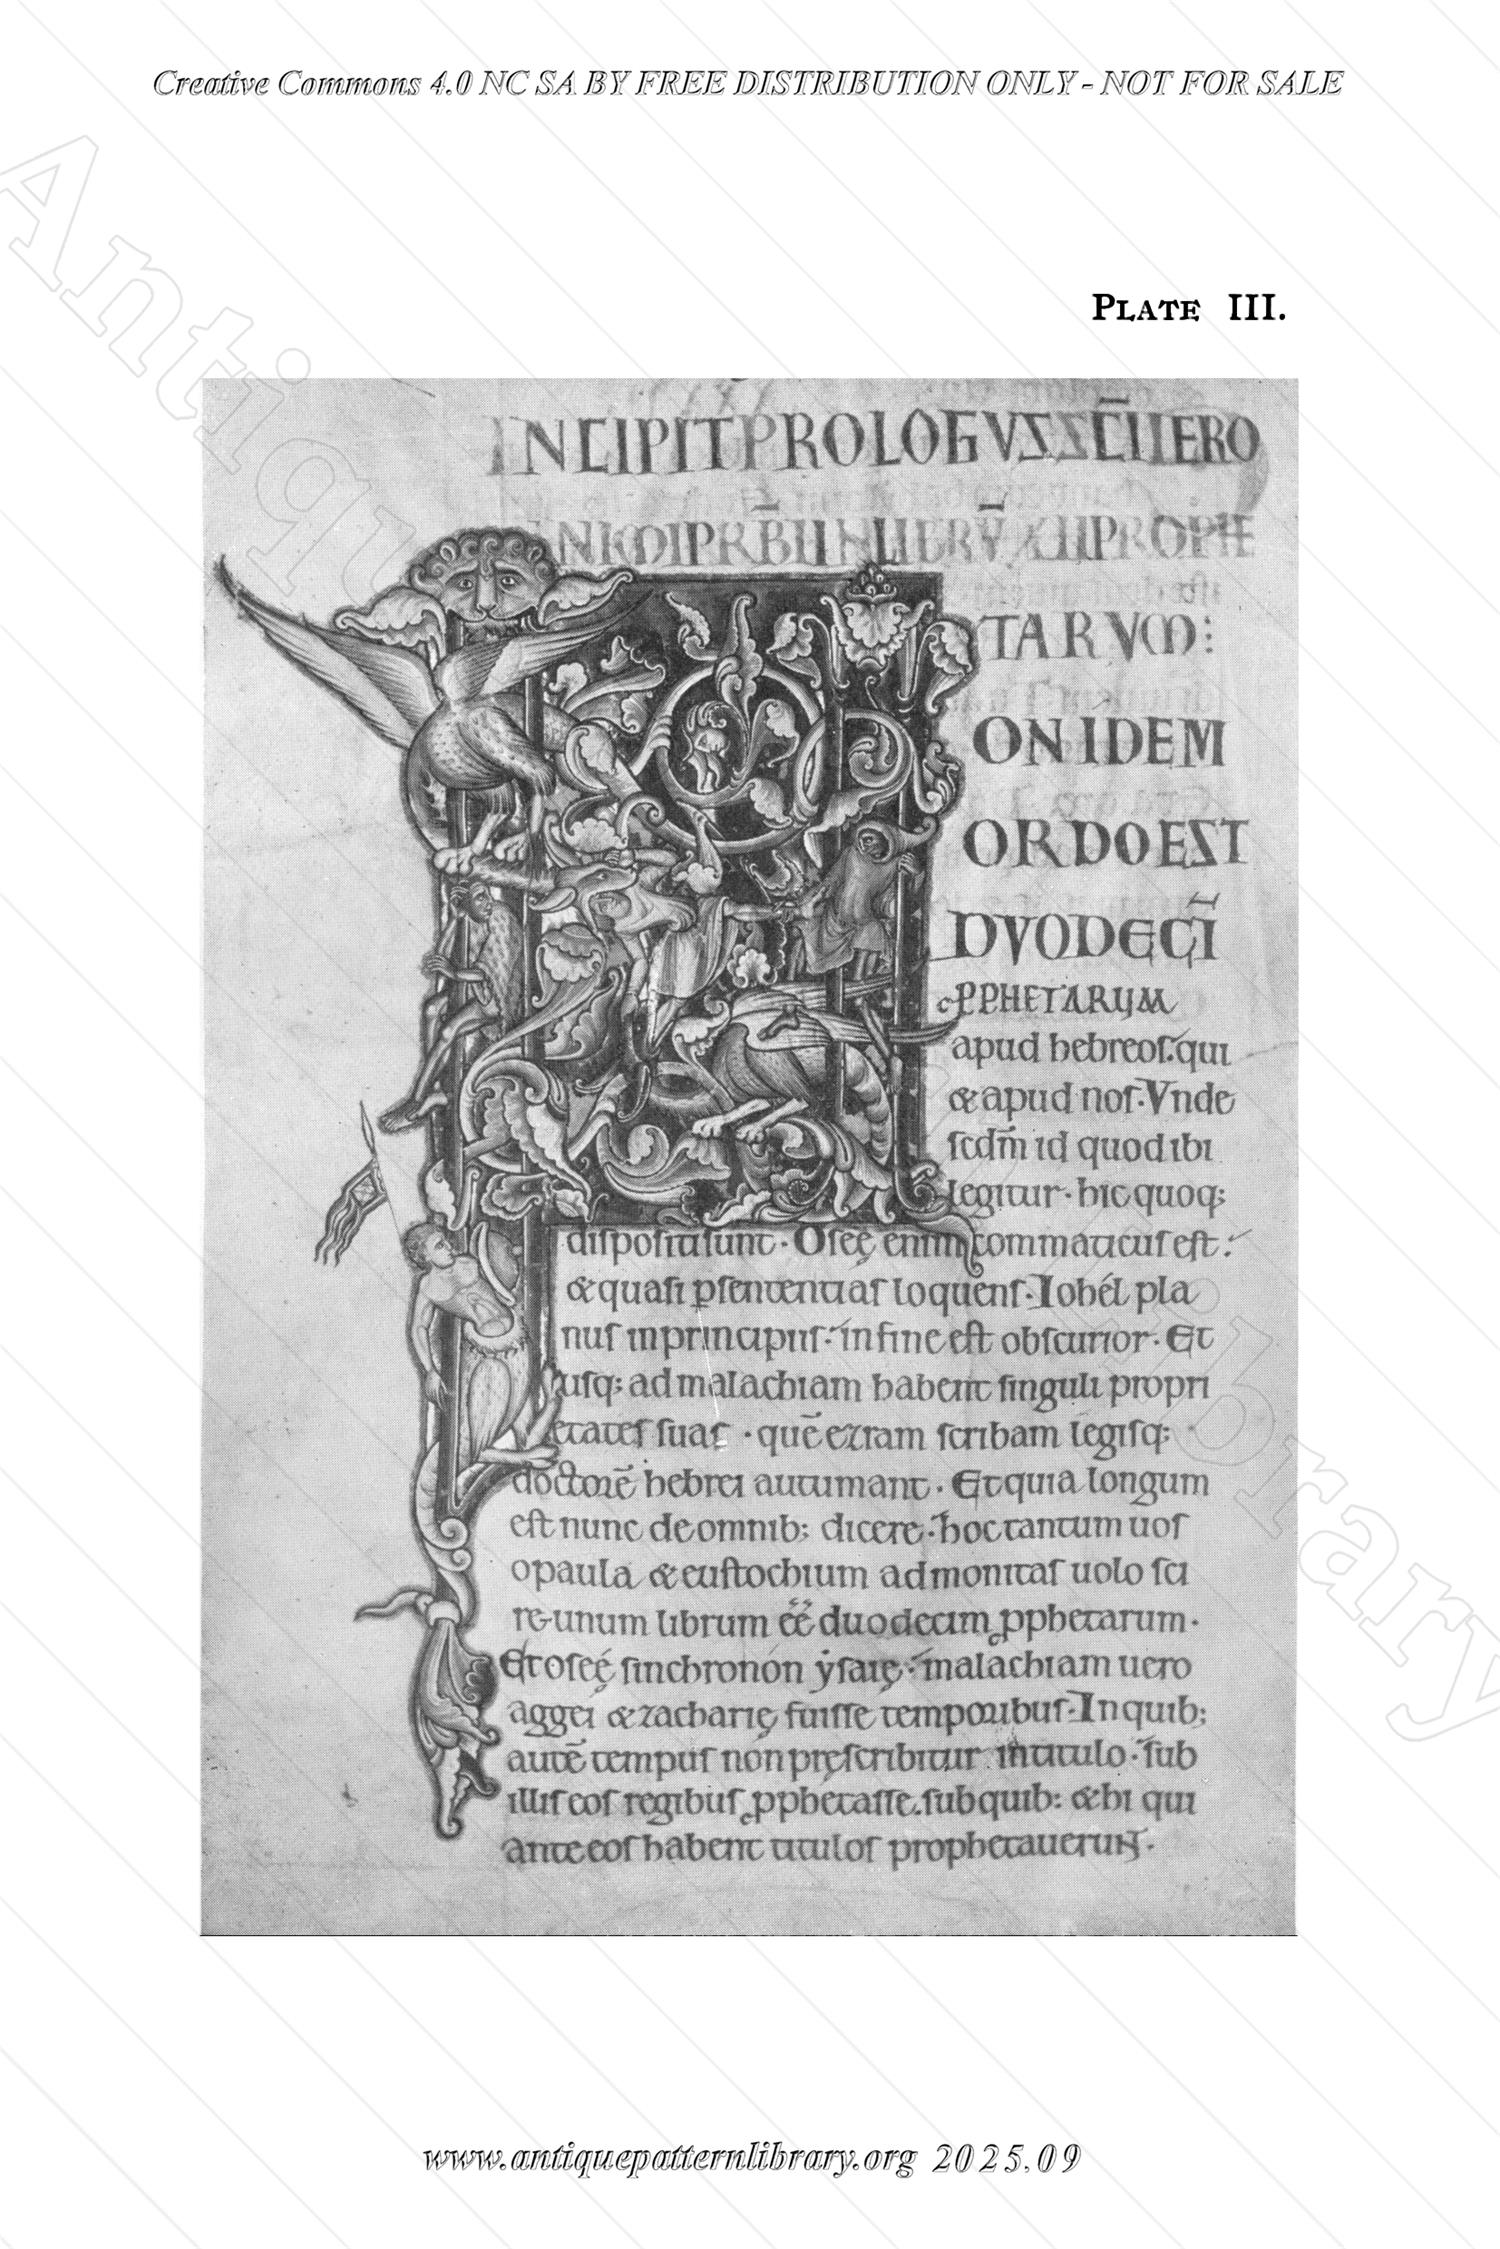 Creative Commons 4.0 NC SA BY FREE DISTRIBUTION ONLY - NOT FOR SALE
Antique
Library
PLATE III.
INCIPIT PROLOGUS SCĪ IERO
NIMI PRBĪI IN LIBRŪ XII PROPHE
TARUM:
NON IDEM
ORDO EST
DUODECĪ
PPHETARUM
apud hebreos. qui
& apud nos. Unde
scdm̄ id quod ibi
legitur. hic quoq;
dispositi sunt. Oseę enim commaticus est.
& quasi p sententias loquens. Iohél pla
nus in principiis. in fine est obscurior. Et
usq; ad malachiam habent singuli propri
etates suas. quē ezram scribam legisq;
doctorē hebrei autumant. Et quia longum
est nunc de omnib; dicere. hoc tantum uos
o paula & eustochium admonitas uolo sci
re. unum librum eē duodecim pphetarum.
Et oseę sinchronón ẏsaię. malachiam uero
aggei & zacharię fuisse temporibus. In quib;
autē tempus non pręscribitur in titulo. sub
illis eos regibus pphetasse. sub quib: & hi qui
ante eos habent titulos prophetauerunt.
www.antiquepatternlibrary.org 2025.09